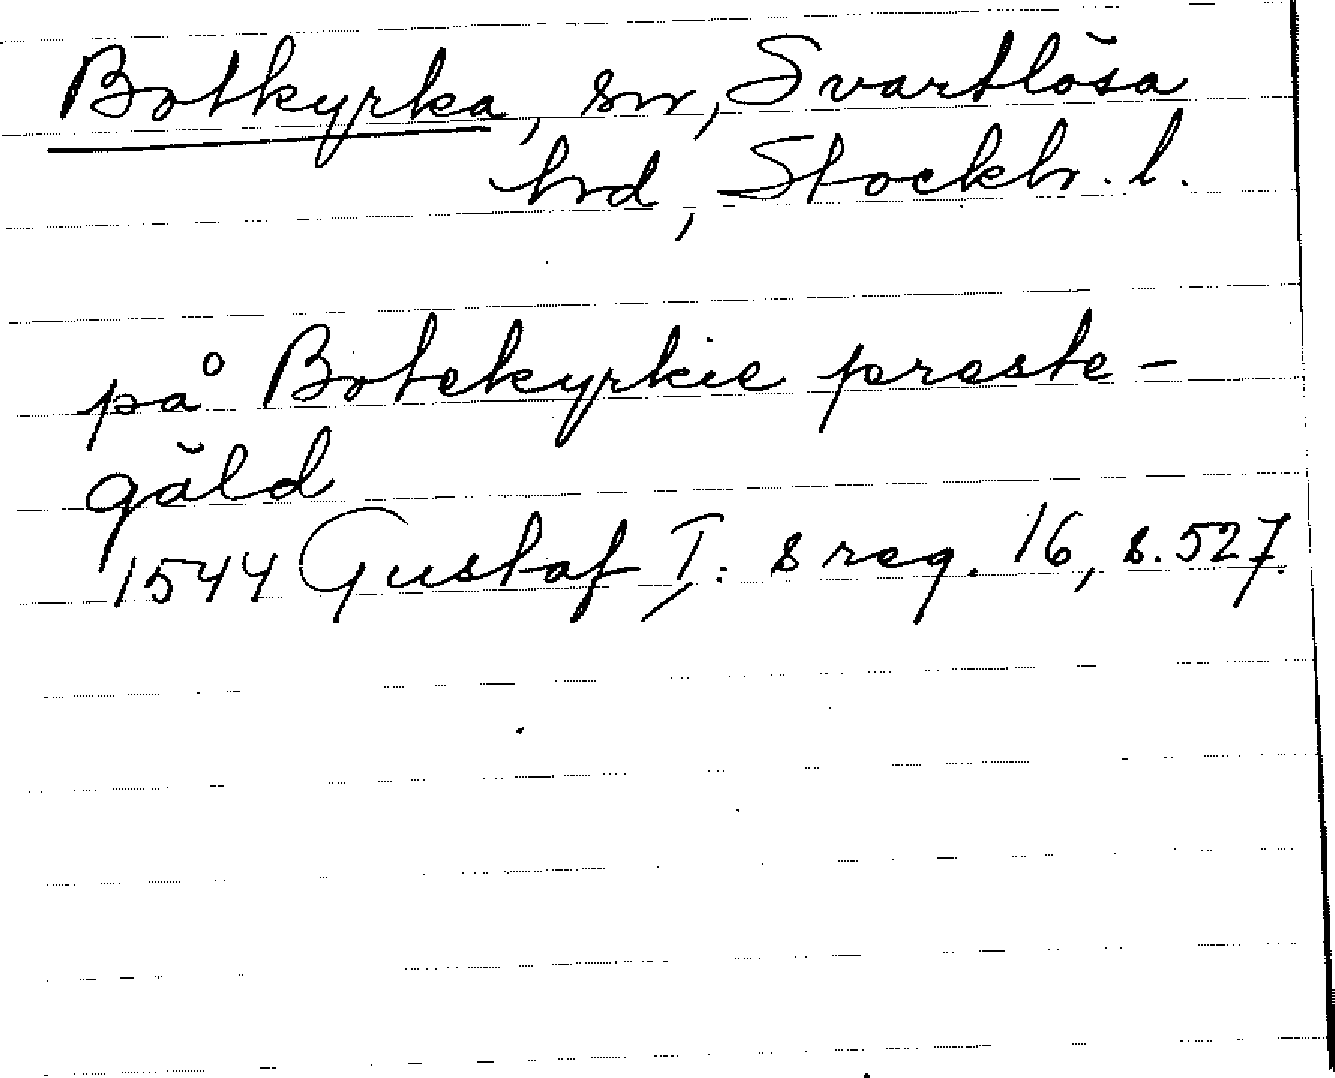 Botkyrka, sn, Svartlösa
hrd, Stockh. l.
på Botekyrkie preste-
gäld
1544 Gustaf I: s reg. 16, s. 527.